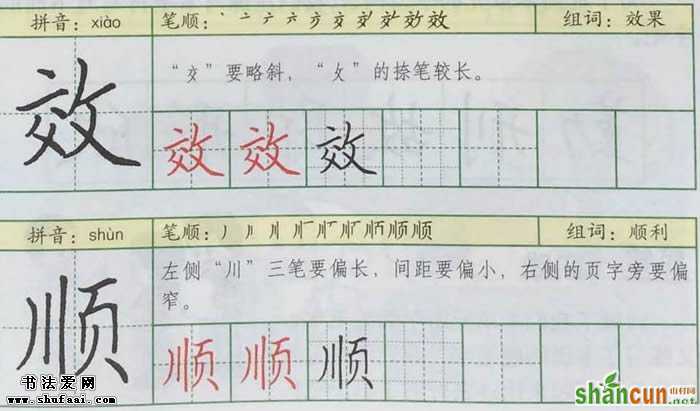 拼音：xiào 笔顺：丶 亠 六 六 亣 交 交 效 效 效 组词：效果
效
“交”要略斜，“攵”的捺笔较长。
效 效 效
拼音：shùn 笔顺：丿 川 川 顺 顺 顺 顺 顺 顺 组词：顺利
顺
左侧“川”三笔要偏长，间距要偏小，右侧的页字旁要偏
窄。
顺 顺 顺
书法爱网
www.shufaai.com
shancun 山村网
.net